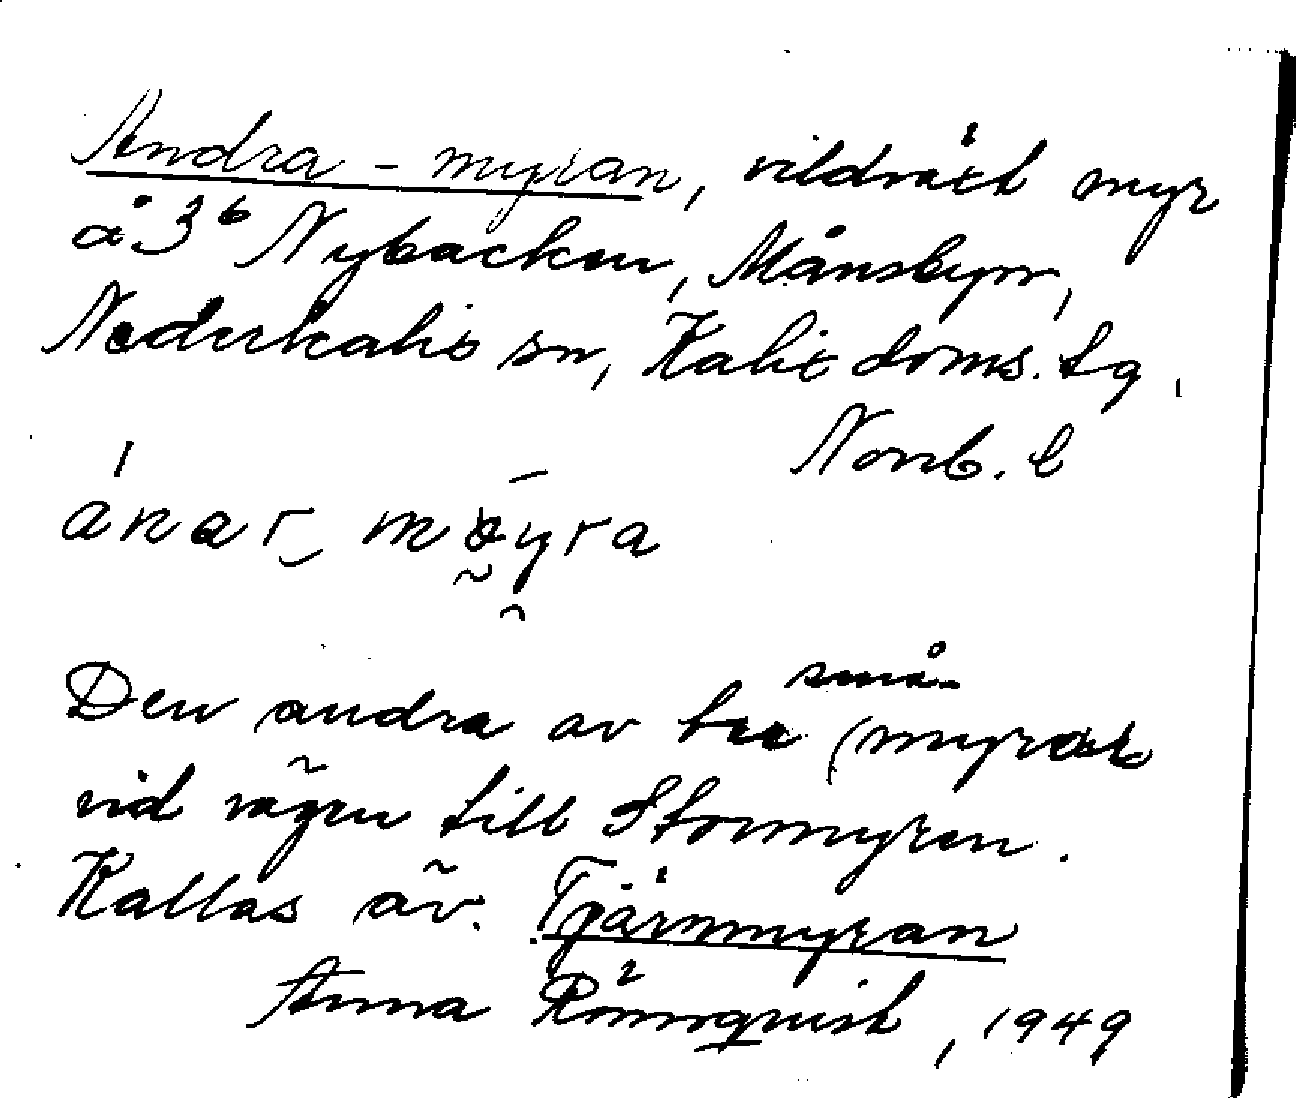 Andra-myran, vildvät myr
å 3⁶ Nybacken, Månsbyn,
Nederkalix sn, Kalix doms. lg,
Norrb. l
ánar_ möyra
Den andra av tre små-myrar
vid vägen till Stormyren.
Kallas äv. Tjärnmyran
Anna Rönnqvist, 1949